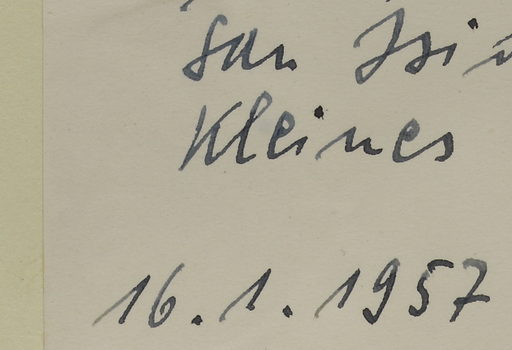 San Isi
Kleines
16.1.1957